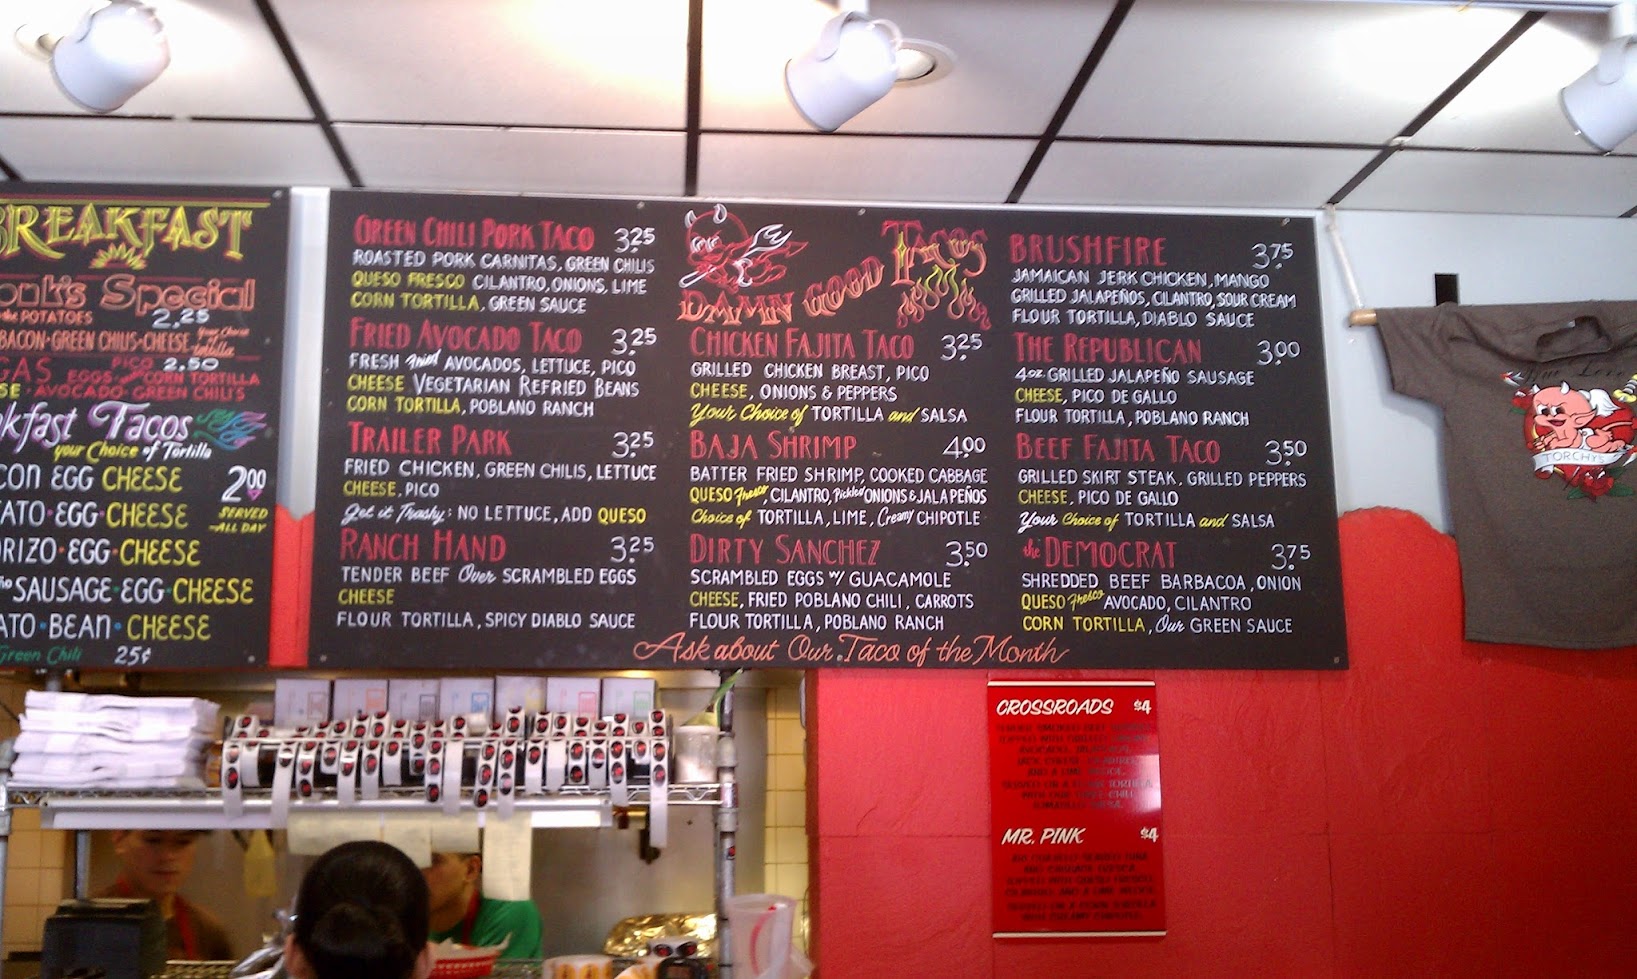 BREAKFAST
Special
POTATOES 2.25
BACON·GREEN CHILIS·CHEESE Your Choice Tortilla
PICO 2.50
EGGS CORN TORTILLA
AVOCADO·GREEN CHILI'S
Tacos
your Choice of Tortilla
EGG CHEESE 2.00
EGG·CHEESE SERVED ALL DAY
EGG·CHEESE
SAUSAGE·EGG·CHEESE
BEAN·CHEESE
Green Chili 25¢
GREEN CHILI PORK TACO 3.25
ROASTED PORK CARNITAS, GREEN CHILIS
QUESO FRESCO CILANTRO, ONIONS, LIME
CORN TORTILLA, GREEN SAUCE
FRIED AVOCADO TACO 3.25
FRESH Fried AVOCADOS, LETTUCE, PICO
CHEESE VEGETARIAN REFRIED BEANS
CORN TORTILLA, POBLANO RANCH
TRAILER PARK 3.25
FRIED CHICKEN, GREEN CHILIS, LETTUCE
CHEESE, PICO
Get it Trashy: NO LETTUCE, ADD QUESO
RANCH HAND 3.25
TENDER BEEF Over SCRAMBLED EGGS
CHEESE
FLOUR TORTILLA, SPICY DIABLO SAUCE
DAMN GOOD TACOS
CHICKEN FAJITA TACO 3.25
GRILLED CHICKEN BREAST, PICO
CHEESE, ONIONS & PEPPERS
Your Choice of TORTILLA and SALSA
BAJA SHRIMP 4.00
BATTER FRIED SHRIMP, COOKED CABBAGE
QUESO Fresco, CILANTRO, Pickled ONIONS & JALAPEÑOS
Choice of TORTILLA, LIME, Creamy CHIPOTLE
DIRTY SANCHEZ 3.50
SCRAMBLED EGGS W/ GUACAMOLE
CHEESE, FRIED POBLANO CHILI, CARROTS
FLOUR TORTILLA, POBLANO RANCH
BRUSHFIRE 3.75
JAMAICAN JERK CHICKEN, MANGO
GRILLED JALAPEÑOS, CILANTRO, SOUR CREAM
FLOUR TORTILLA, DIABLO SAUCE
THE REPUBLICAN 3.00
4oz. GRILLED JALAPEÑO SAUSAGE
CHEESE, PICO DE GALLO
FLOUR TORTILLA, POBLANO RANCH
BEEF FAJITA TACO 3.50
GRILLED SKIRT STEAK, GRILLED PEPPERS
CHEESE, PICO DE GALLO
Your Choice of TORTILLA and SALSA
the DEMOCRAT 3.75
SHREDDED BEEF BARBACOA, ONION
QUESO Fresco AVOCADO, CILANTRO
CORN TORTILLA, Our GREEN SAUCE
Ask about Our Taco of the Month
TORCHYS
CROSSROADS $4
MR. PINK $4